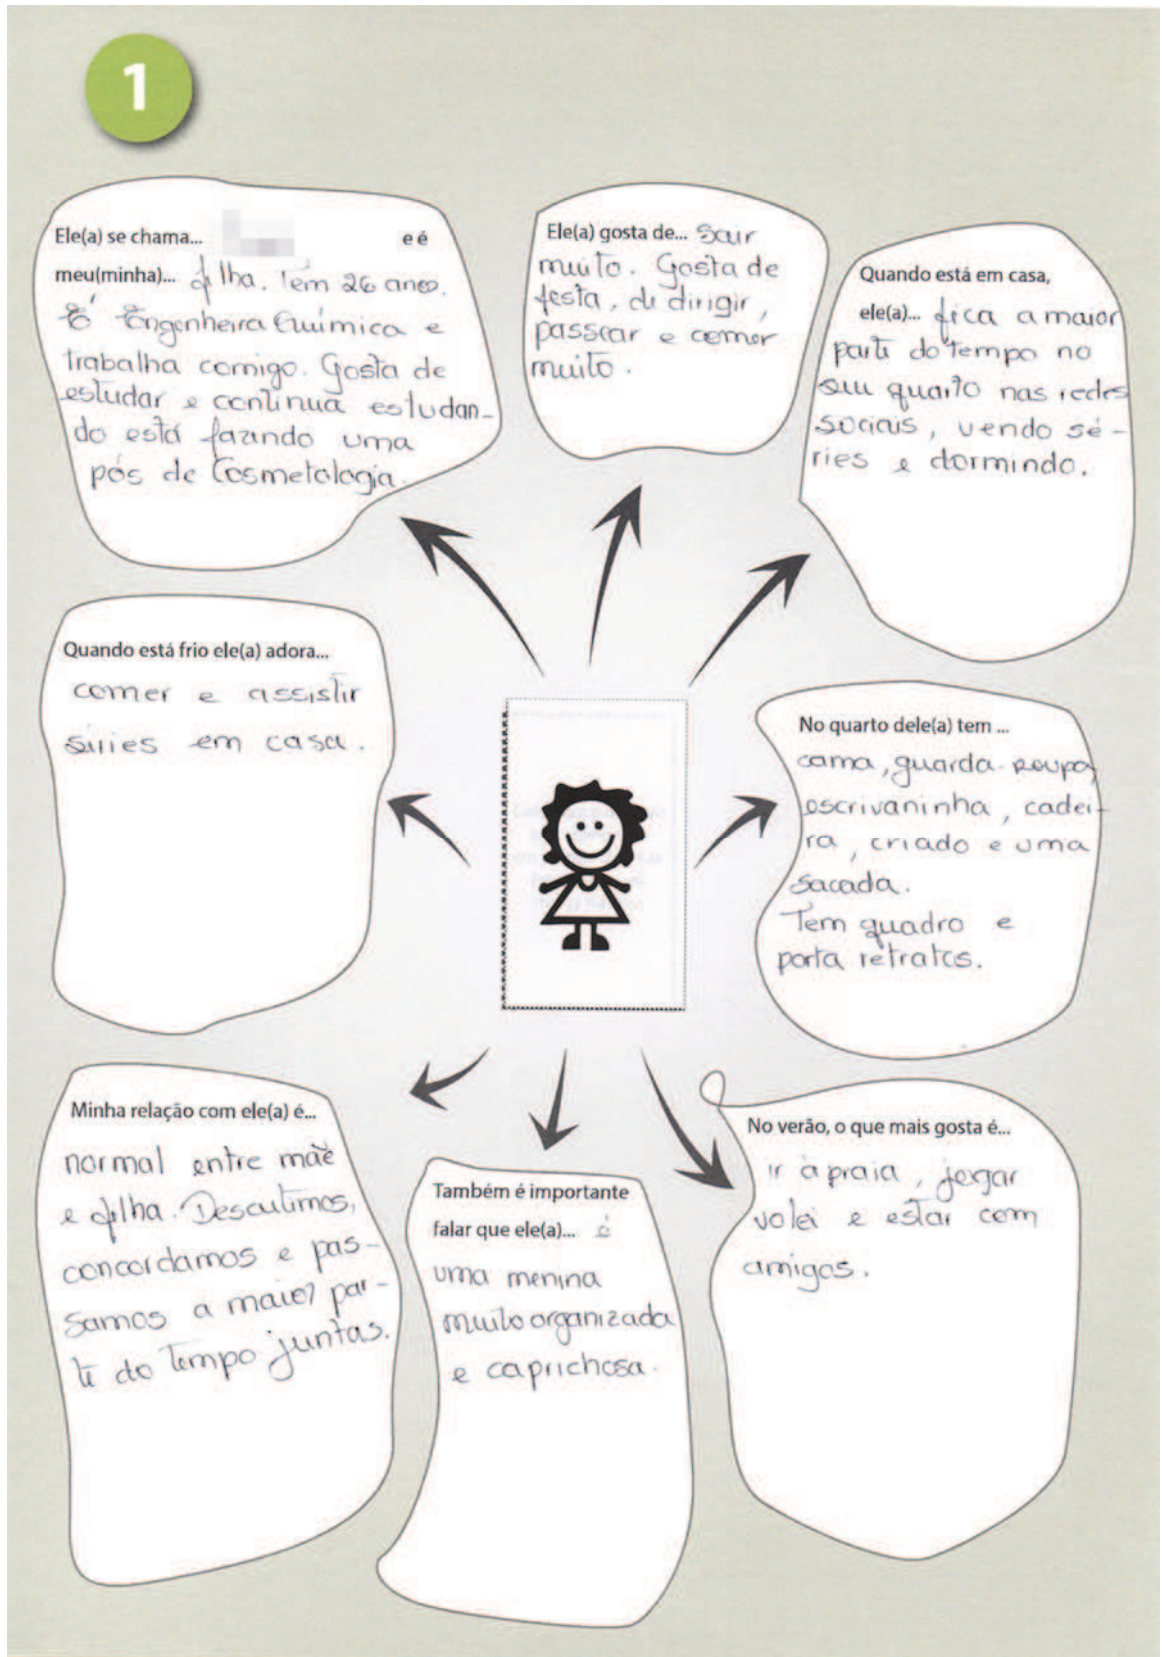 1
Ele(a) se chama... e é
meu(minha)... filha. Tem 26 anos.
É Engenheira Química e
trabalha comigo. Gosta de
estudar e continua estudan-
do está fazendo uma
pós de Cosmetologia.
Ele(a) gosta de... Sair
muito. Gosta de
festa, de dirigir,
passear e comer
muito.
Quando está em casa,
ele(a)... fica a maior
parte do tempo no
seu quarto nas redes
sociais, vendo sé-
ries e dormindo.
Quando está frio ele(a) adora...
comer e assistir
séries em casa.
No quarto dele(a) tem ...
cama, guarda-roupa,
escrivaninha, cadei-
ra, criado e uma
sacada.
Tem quadro e
porta retratos.
Minha relação com ele(a) é...
normal entre mãe
e filha. Descutimos,
concordamos e pas-
samos a maior par-
te do tempo juntas.
Também é importante
falar que ele(a)... é
uma menina
muito organizada
e caprichosa.
No verão, o que mais gosta é...
ir à praia, jogar
volei e estar com
amigos.